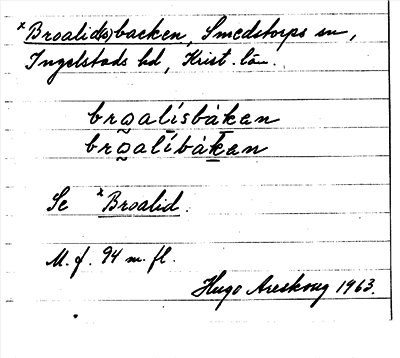 ×Broalid(s)backen, Smedstorps sn,
Ingelstads hd, Krist. län.
broalísbàkan
broalíbàkan
Se ×Broalid.
M. f. 94 m. fl.
Hugo Areskoug 1963.